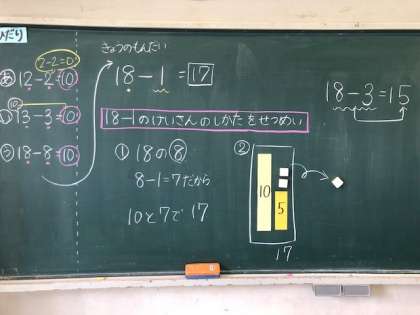 ひだり
2-2=0
あ 12-2=10
10
い 13-3=10
う 18-8=10
きょうのもんだい
18-1=17
18-1のけいさんのしかたをせつめい
① 18の8
8-1=7だから
10と7で17
②
10
5
17
18-3=15